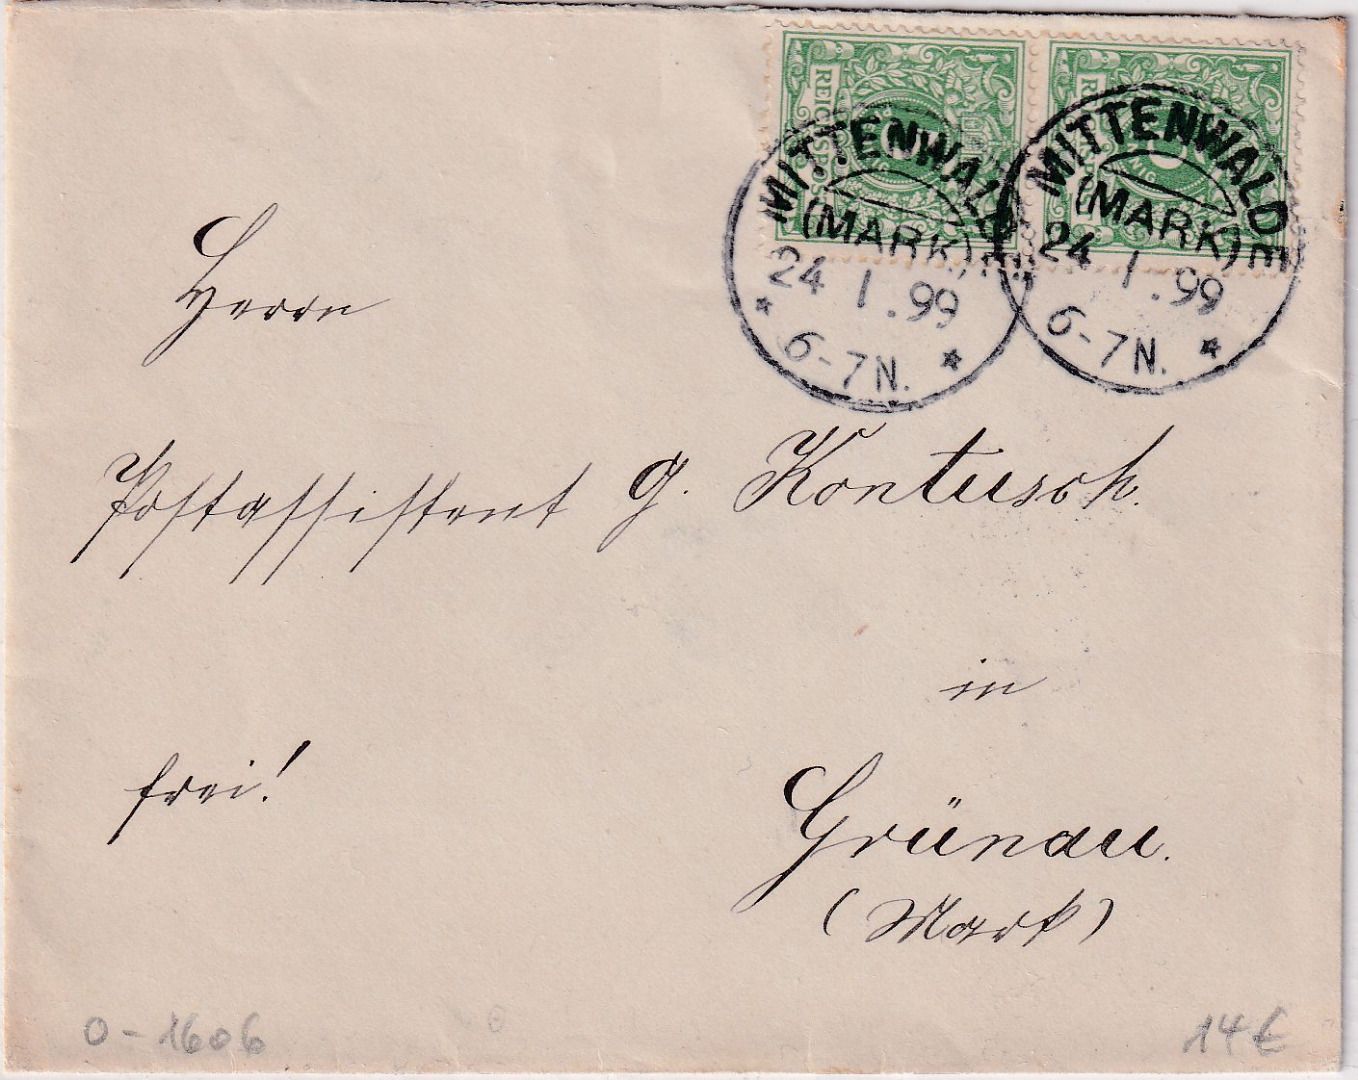 REICHSPOST
MITTENWALDE
(MARK)
24 1.99
* 6-7N. *
MITTENWALDE
(MARK)
24 1.99
6-7N. *
Herrn
Postassistent G. Kontusch.
in
frei!
Grünau.
(Mark)
0-1606
14€